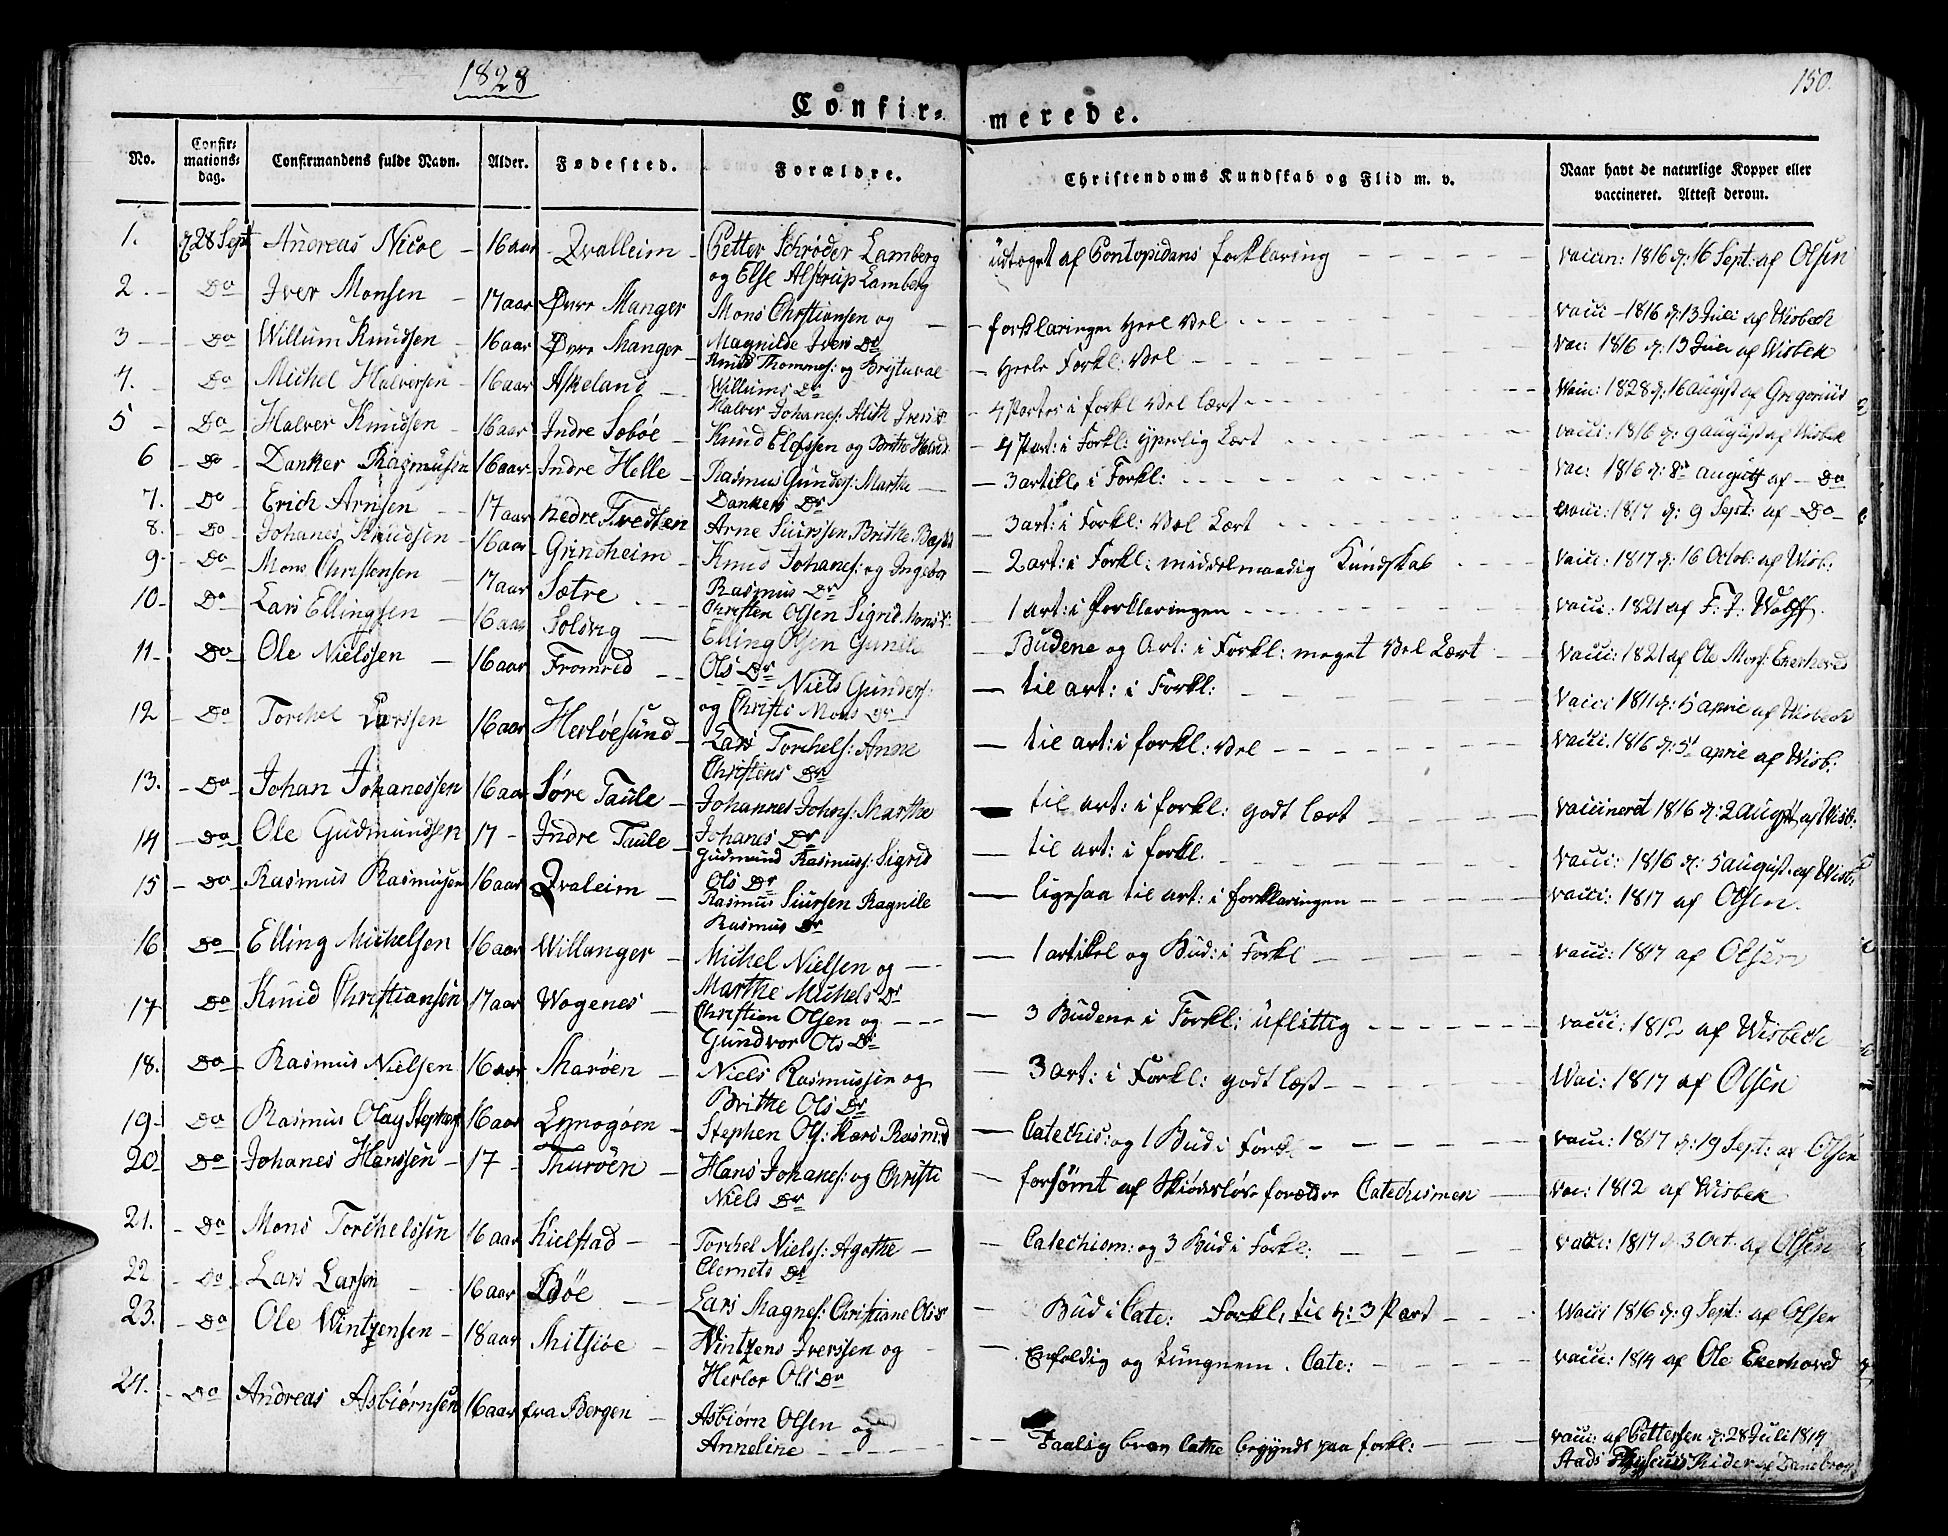 1828
150.
Confir- merede.
No. Confir-mations-dag. Confirmandens fulde Navn. Alder. Fødested. Forældre. Christendoms Kundskab og Flid m. v. Naar havt de naturlige Kopper eller vaccineret. Attest derom.
1. d 28 Sept Andreas Nicoe 16 aar Qvalleim Petter Schrøder Lamberg og Else Alstrup Lamberg udtoget af Pontopidans forklaring vaccin: 1816 d: 16 Sept: af Olsen
2. Do Iver Monsen 17 aar Øvre Manger Mons Christiansen og Magnilde Ivers Dr forklaringen Heel Vel vacci 1816 d: 13 Juli af Wisbech
3 Do Willum Knudsen 16 aar Øvre Manger Knud Thommes: og Brijtuval Willums Dr Heele Forkl: Vel vac: 1816 d: 13 Juli af Wisbek
4. Do Michel Halversen 16 aar Askeland Halver Johanes: Alith Ivers Dr 4 Parter i forkl Vel lært Vacu: 1828 d: 16 august af Gregorius
5 Do Halver Knudsen 16 aar Indre Sæbøe Knud Elefssen og Brithe 4 Part: i Forkl: yperlig Lært vacci: 1816 d: 9 august af Wisbek
6 Do Danker Rasmussen 16 aar Indre Helle Rasmus Gunders: Marthe Dankers Dr 3 artikle i Forkl: vac: 1816 d: 8de august af Do
7. Do Erich Arnsen 17 aar nedre Tvedten Arne Siurssen Brithe 3 art: i Forkl: Vel Lært vacci: 1817 d: 9 Sept: af Do
8. Do Johanes Knudsen 16 aar Grindheim Knud Johanes: og Ingebor Rasmus Dr 2 art: i Forkl: middelmaadig Kundskab Vacci: 1817 d: 16 Octob: af Wisb:
9. Do Mons Christensen 17 aar Sætre Christen Olsen Sigrid Mons Dr 1 art: i Forklaringen vacci: 1821 af F: J: Wolff.
10. Do Lars Ellingsen 16 aar Solsvig Elling Olsen Gunile Ols Dr Budene og Art: i Forkl: meget Vel Lært Vacci: 1821 af Ole Mons: Ekerhovd
11. Do Ole Nielssen 16 aar Fromred Niels Gunders: og Christi Mons Dr til art: i Forkl: Vacci 1811 d: 5 aprie af Wisbech
12 Do Torchel Larssen 16 aar Herløesund Lars Torchels: Anne Christens Dr til art: i forkl: Vel Vacci. 1816 d: 5t aprie af Wisb:
13. Do Johan Johanessen 16 aar Søre Taule Johannes Johns: Marthe Johanes Dr til art: i forkl: godt lært vaccineret 1816 d: 2 august af Wisb.
14 Do Ole Gudmundsen 17 Indre Taule Gudmund Rasmuss: Sigrid Ols Dr til art: i forkl. Vacci: 1816 d: 5 august af Wisb:
15 Do Rasmus Rasmusen 16 aar Qvaleim Rasmus Siursen Ragnile Rasmus Dr ligesaa til art: i forklaringen vacci: 1817 af Olsen.
16 Do Elling Michelsen 16 aar Willanger Michel Nielsen og Marthe Michels Dr 1 artikel og Bud: i Forkl vacci: 1817 af Olsen
17 Do Knud Christiansen 17 aar Wogenes Christian Olsen og Gundvor Ols Dr 3 Budene i Forkl: uflittig vacci: 1812 af Wisbech
18. Do Rasmus Nielsen 16 aar Marøen Niels Rasmussen og Brithe Ols Dr 3 art: i Forkl: godt læst Vac: 1817 af Olsen
19. Do Rasmus Olay Stephens 16 aar Lÿngøen Stephen Ols: Kari Rasm: d Catechis: og 1 Bud i Forkl vacci: 1817 d: 19 Sept: af Olsen
20 Do Johanes Hanssen 17 Thurøen Hans Johanes: og Christi Niels Dr forsømt af Skiødesløse forældre Catechismen Vac: 1812 af Wisbek
21. Do Mons Torchelssen 16 aar Kielstad Torchel Nielss: Agathe Clemets Dr Catechism: og 3 Bud i Forkl: vacci: 1817 d. 3 Oct. af Olsen
22 Do Lars Larsen 16 aar Bøe Lars Magnes: Christiane Ols Dr Bud i Cate: Forkl: til d: 3 Part Vacci 1816 d: 9 Sept: af Olsen
23. Do Ole Wintzensen 18 aar Mitsiøe Wintzens Iverssen og Herlor Ols Dr Enfoldig og tungnem. Cate: vacci: 1814 af Ole Ekerhovd
24. Do Andreas Asbiørnsen 16 aar fra Bergen Asbiørn Olsen og Anneline Taalig brav Cathe begyndt paa forkl: vacci: af Pettersen d: 28 Juli 1814 Stads Physicus Rider af Danebrog